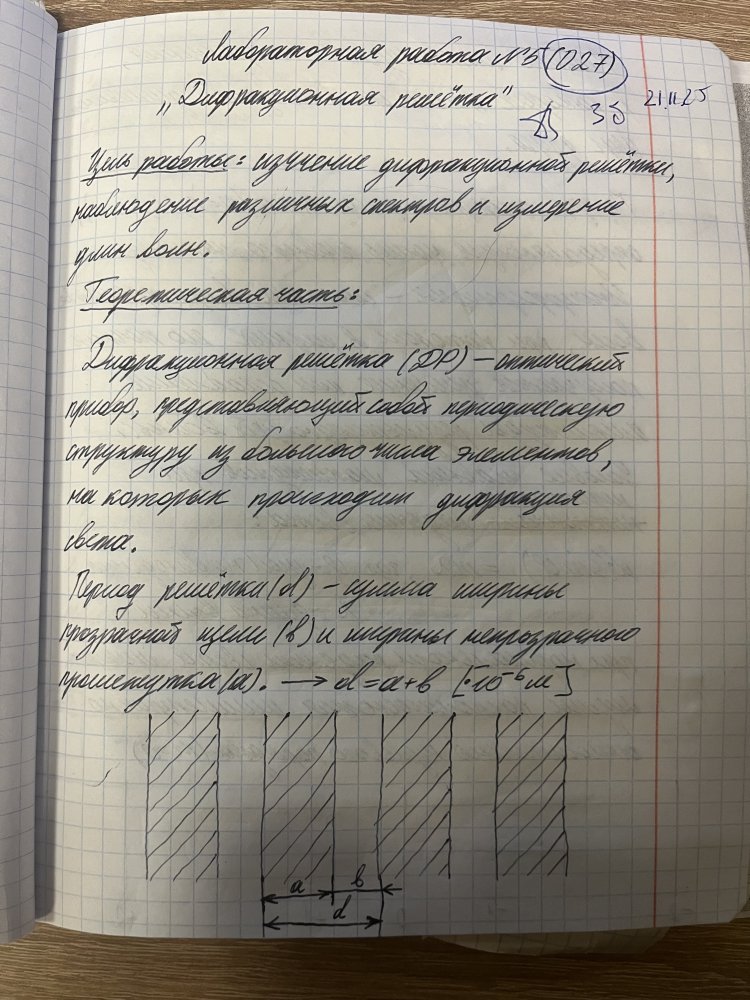 Лабораторная работа №5 (027)
„Дифракционная решётка"
3δ 21.11.25
Цель работы: изучение дифракционной решётки,
наблюдение различных спектров и измерение
длин волн.
Теоретическая часть:
Дифракционная решётка (ДР) – оптический
прибор, представляющий собой периодическую
структуру из большого числа элементов,
на которых происходит дифракция
света.
Период решётки (d) – сумма ширины
прозрачной щели (в) и ширины непрозрачного
промежутка (а). → d = a + в [·10⁻⁶ м]
а в
d